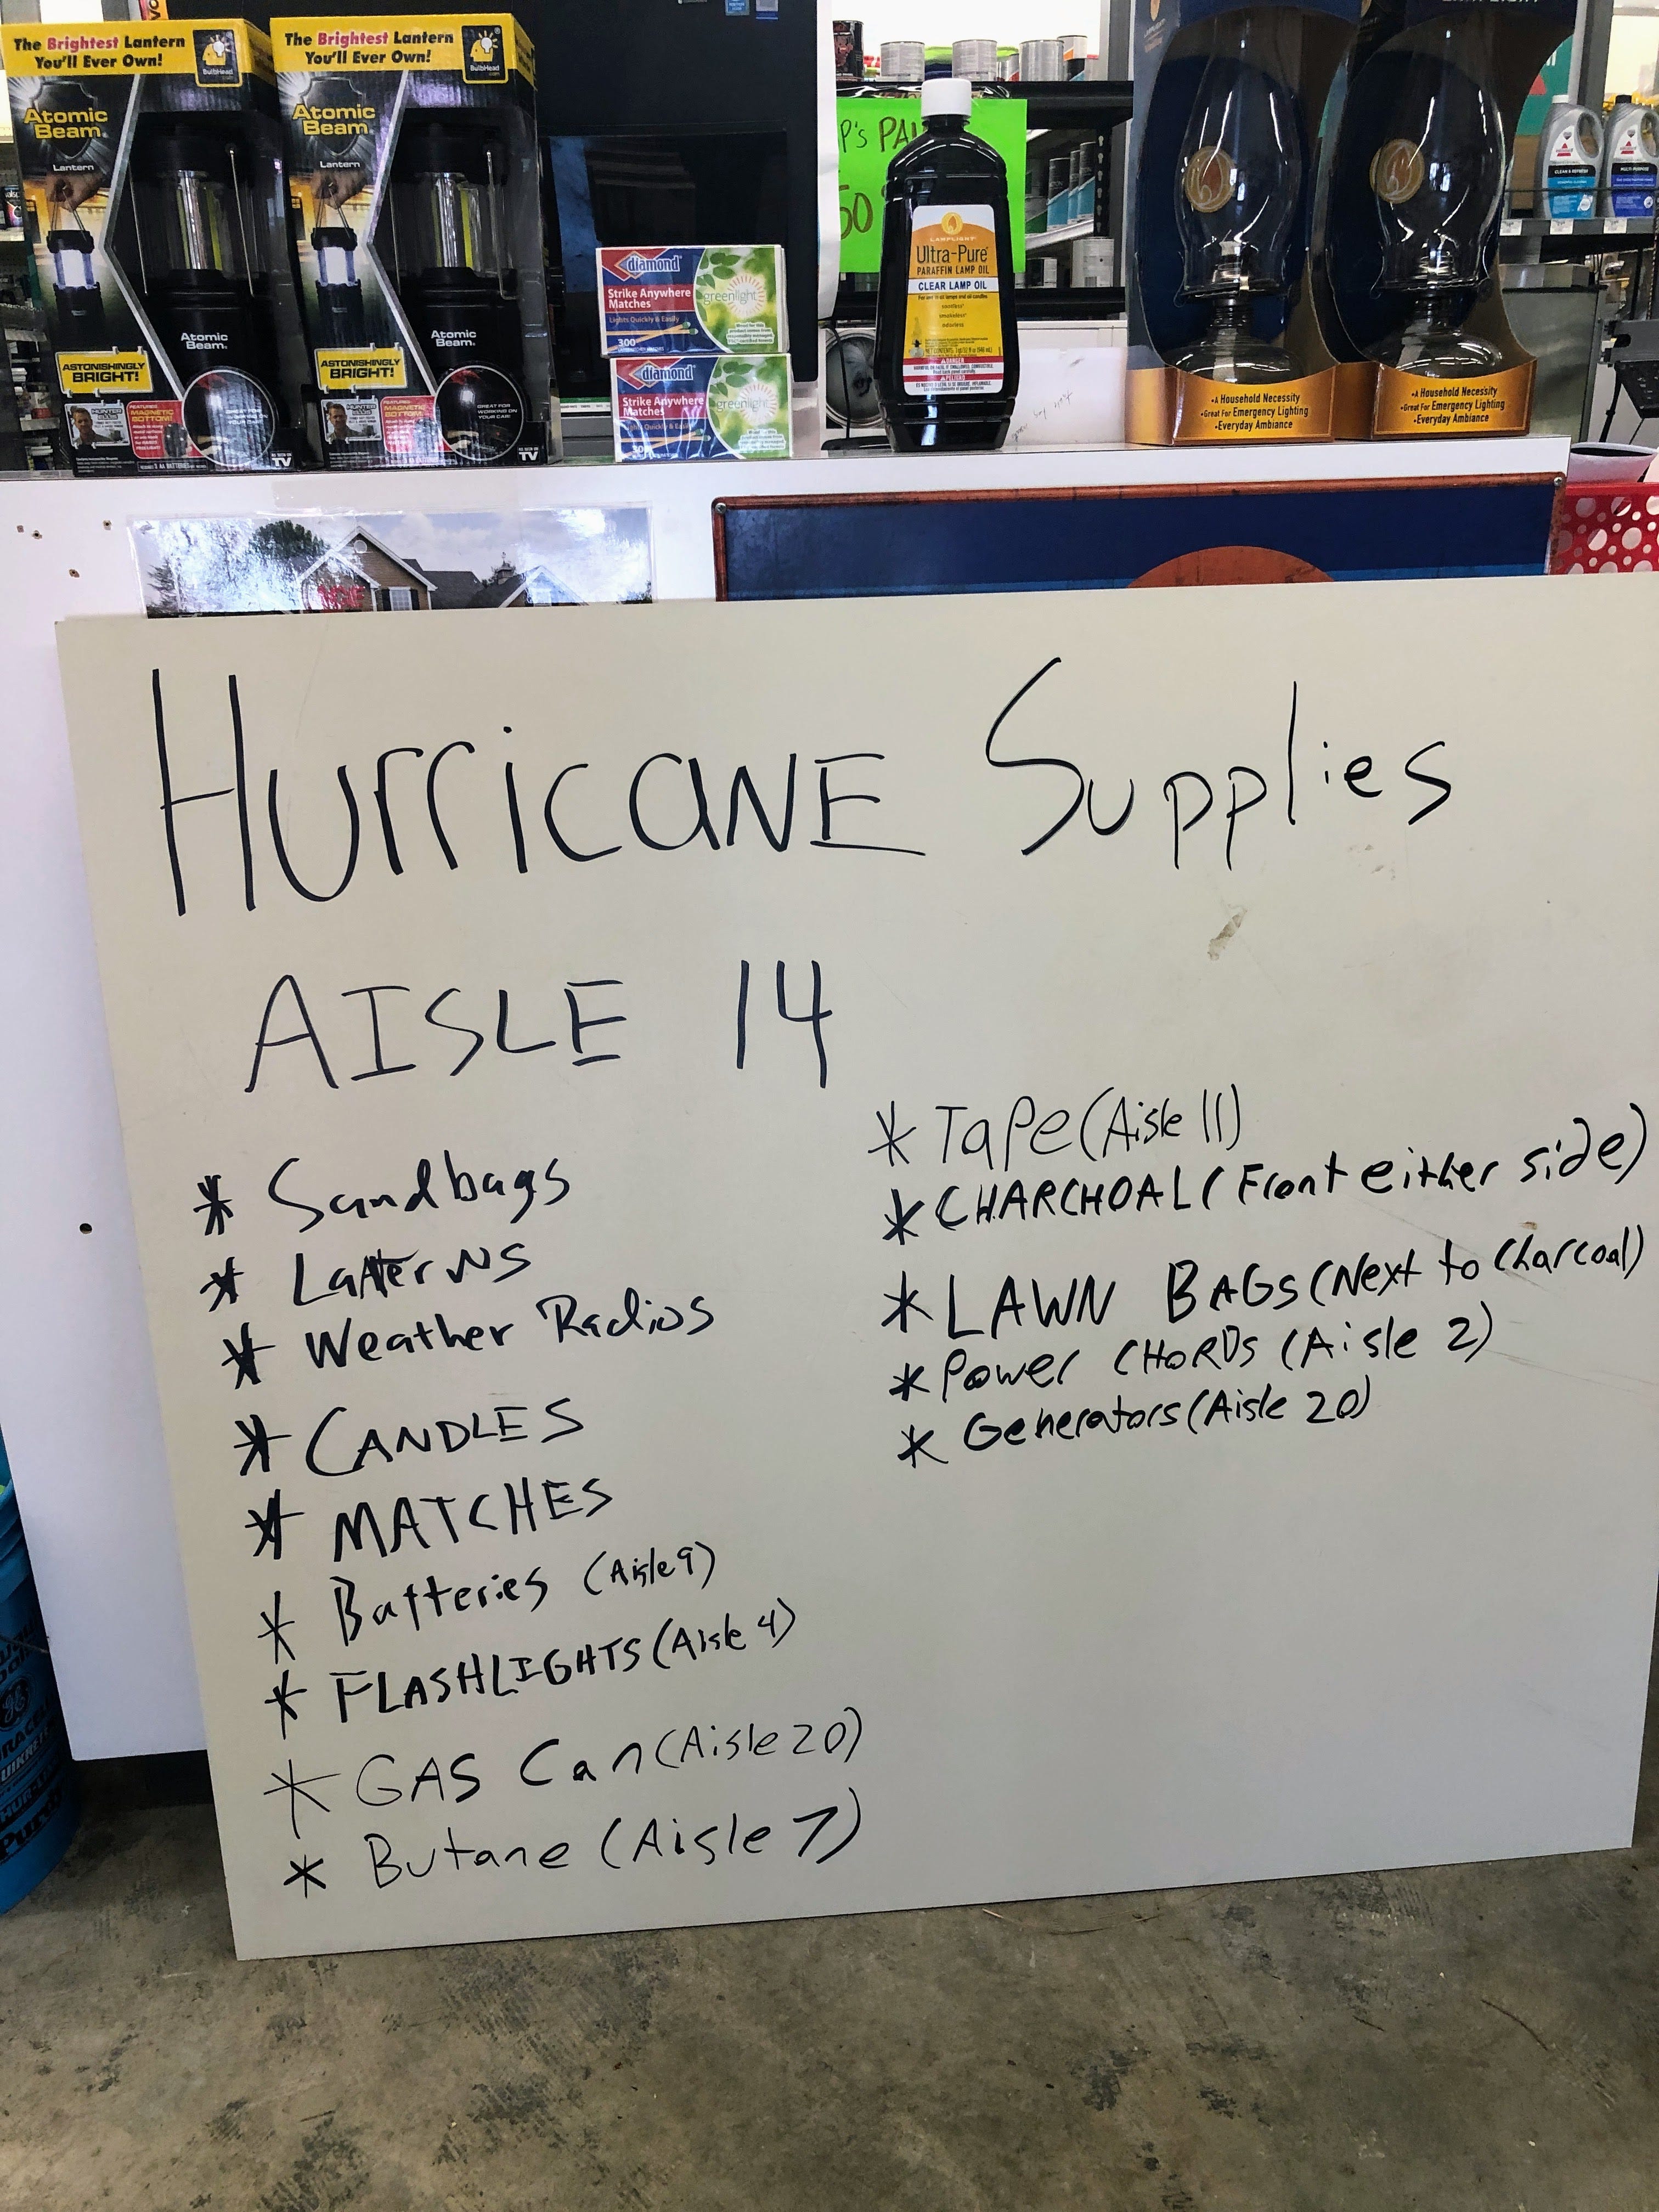 The Brightest Lantern
You'll Ever Own!
BulbHead
Atomic
Beam
Lantern
Atomic
Beam
ASTONISHINGLY
BRIGHT!
FEATURES
MAGNETIC
BOTTOM!
TV
The Brightest Lantern
You'll Ever Own!
BulbHead
Atomic
Beam
Lantern
Atomic
Beam
ASTONISHINGLY
BRIGHT!
FEATURES
MAGNETIC
BOTTOM!
GREAT FOR
WORKING ON
YOUR CAR!
TV
diamond
Strike Anywhere
Matches
Lights Quickly & Easily
300
greenlight
diamond
Strike Anywhere
Matches
Lights Quickly & Easily
300
greenlight
LAMPLIGHT
Ultra-Pure
PARAFFIN LAMP OIL
CLEAR LAMP OIL
sootless
smokeless
odorless
DANGER
PELIGRO
•A Household Necessity
•Great For Emergency Lighting
•Everyday Ambiance
•A Household Necessity
•Great For Emergency Lighting
•Everyday Ambiance
HurricaNE Supplies
AISLE 14
* Sandbags
* LaNterNs
* Weather Radios
* CANDLES
* MATCHES
* Batteries (Aisle 9)
* FLASHLIGHTS (Aisle 4)
* GAS Can (Aisle 20)
* Butane (Aisle 7)
* Tape (Aisle 11)
* CHARCHOAL (Front either side)
* LAWN BAGS (Next to Charcoal)
* Power CHORDS (Aisle 2)
* Generators (Aisle 20)